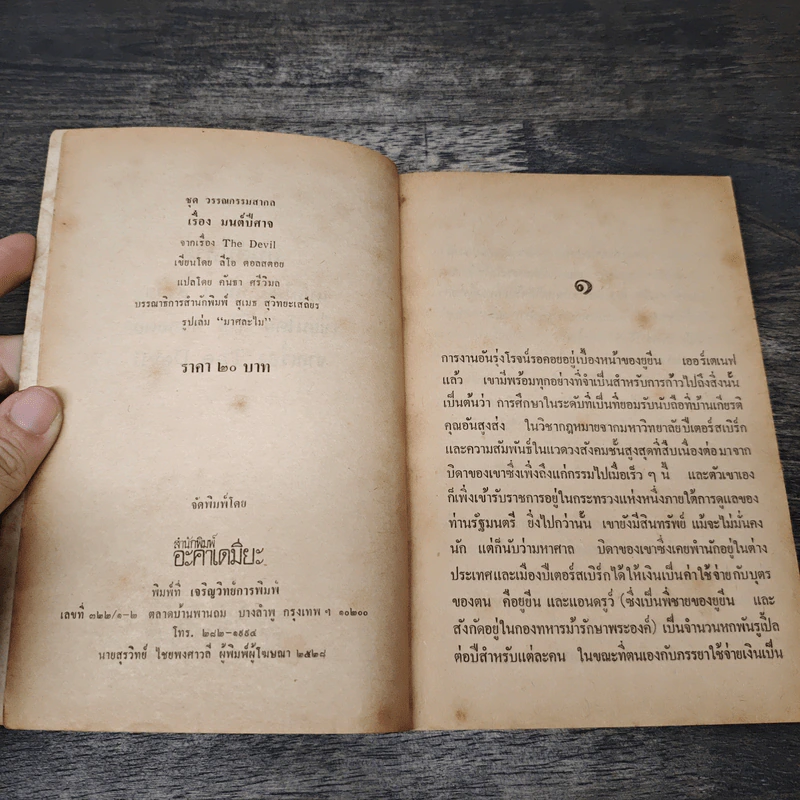 ชุด วรรณกรรมสากล
เรื่อง มนต์ปีศาจ
จากเรื่อง The Devil
เขียนโดย ลีโอ ตอลสตอย
แปลโดย คันธา ศรีวิมล
บรรณาธิการสำนักพิมพ์ สุเมธ สุวิทยะเสถียร
รูปเล่ม "มาศละไม"
ราคา ๒๐ บาท
จัดพิมพ์โดย
สำนักพิมพ์
อะคาเดมียะ
พิมพ์ที่ เจริญวิทย์การพิมพ์
เลขที่ ๓๒๒/๑-๒ ตลาดบ้านพานถม บางลำพู กรุงเทพ ฯ ๑๐๒๐๐
โทร. ๒๘๒-๑๙๙๔
นายสุรวิทย์ ไชยพงศาวลี ผู้พิมพ์ผู้โฆษณา ๒๕๒๘
๑
การงานอันรุ่งโรจน์รอคอยอยู่เบื้องหน้าของยูยีน เออร์เตเนฟ
แล้ว เขามีพร้อมทุกอย่างที่จำเป็นสำหรับการก้าวไปถึงสิ่งนั้น
เป็นต้นว่า การศึกษาในระดับที่เป็นที่ยอมรับนับถือที่บ้านเกียรติ
คุณอันสูงส่ง ในวิชากฎหมายจากมหาวิทยาลัยปีเตอร์สเบิร์ก
และความสัมพันธ์ในแวดวงสังคมชั้นสูงสุดที่สืบเนื่องต่อมาจาก
บิดาของเขาซึ่งเพิ่งถึงแก่กรรมไปเมื่อเร็ว ๆ นี้ และตัวเขาเอง
ก็เพิ่งเข้ารับราชการอยู่ในกระทรวงแห่งหนึ่งภายใต้การดูแลของ
ท่านรัฐมนตรี ยิ่งไปกว่านั้น เขายังมีสินทรัพย์ แม้จะไม่มั่นคง
นัก แต่ก็นับว่ามหาศาล บิดาของเขาซึ่งเคยพำนักอยู่ในต่าง
ประเทศและเมืองปีเตอร์สเบิร์กได้ให้เงินเป็นค่าใช้จ่ายกับบุตร
ของตน คือยูยีนและแอนดรูว์ (ซึ่งเป็นพี่ชายของยูยีน และ
สังกัดอยู่ในกองทหารม้ารักษาพระองค์) เป็นจำนวนหกพันรูเบิ้ล
ต่อปีสำหรับแต่ละคน ในขณะที่ตนเองกับภรรยาใช้จ่ายเงินเป็น